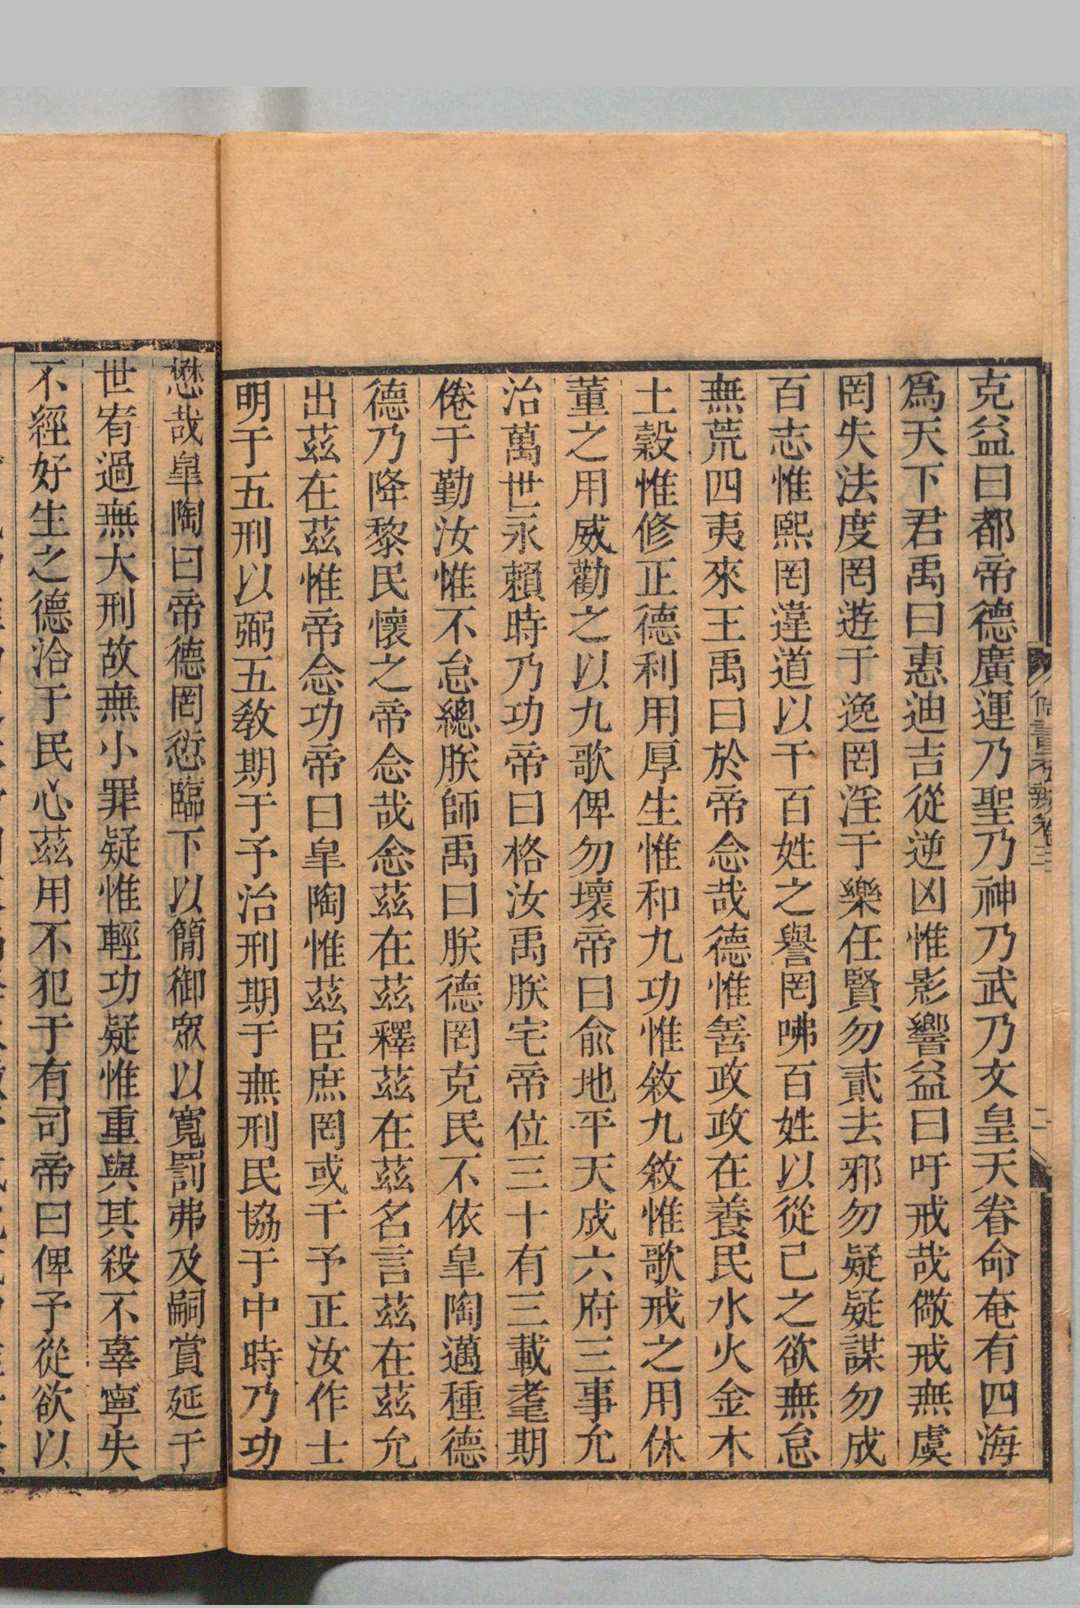 克益曰都帝德廣運乃聖乃神乃武乃文皇天眷命奄有四海
爲天下君禹曰惠迪吉從逆凶惟影響益曰吁戒哉儆戒無虞
罔失法度罔遊于逸罔淫于樂任賢勿貳去邪勿疑疑謀勿成
百志惟熙罔違道以干百姓之譽罔咈百姓以從己之欲無怠
無荒四夷來王禹曰於帝念哉德惟善政政在養民水火金木
土穀惟修正德利用厚生惟和九功惟敘九敘惟歌戒之用休
董之用威勸之以九歌俾勿壞帝曰兪地平天成六府三事允
治萬世永賴時乃功帝曰格汝禹朕宅帝位三十有三載耄期
倦于勤汝惟不怠總朕師禹曰朕德罔克民不依皐陶邁種德
德乃降黎民懷之帝念哉念茲在茲釋茲在茲名言茲在茲允
出茲在茲惟帝念功帝曰皐陶惟茲臣庶罔或干予正汝作士
明于五刑以弼五教期于予治刑期于無刑民協于中時乃功
懋哉皐陶曰帝德罔愆臨下以簡御眾以寬罰弗及嗣賞延于
世宥過無大刑故無小罪疑惟輕功疑惟重與其殺不辜寧失
不經好生之德洽于民心茲用不犯于有司帝曰俾予從欲以